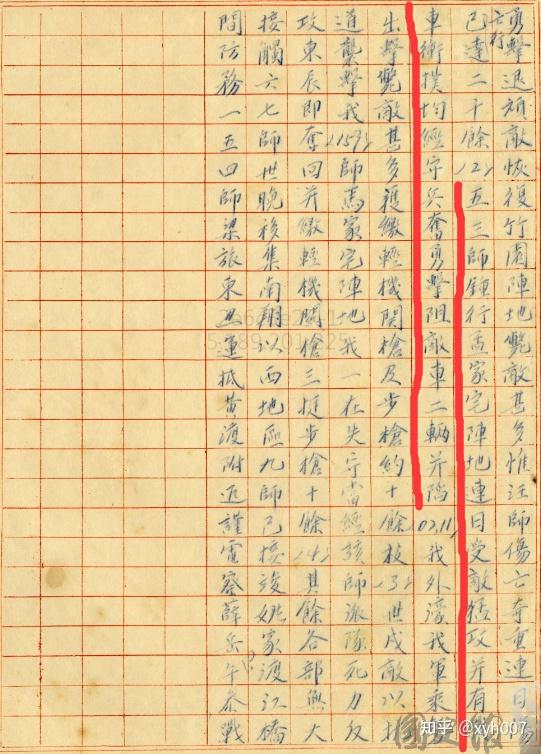 勇擊退頑敵恢復竹園陣地斃敵甚多惟汪師傷亡奇重連日傷
亡官
已達二千餘(2)五三師鍾行孟家宅陣地連日受敵猛攻并有
車衝撲均經守兵奮勇擊阻敵車二輛并陷02,11我外濠我軍乘
出擊斃敵甚多獲繳輕機關槍及步槍約十餘枝(3)世戌敵以
道襲擊我(159)師馬家宅陣地我一在失守當經該師派隊死力反
攻東辰即奪回并繳輕機關槍三挺步槍十餘(4)其餘各部無大
接觸六七師世晚移集南翔以西地區九師已接竣姚家渡江橋
間防務一五四師梁旅東丑運抵黃渡附近謹電察薛岳午叅戰
知乎 @xyh007